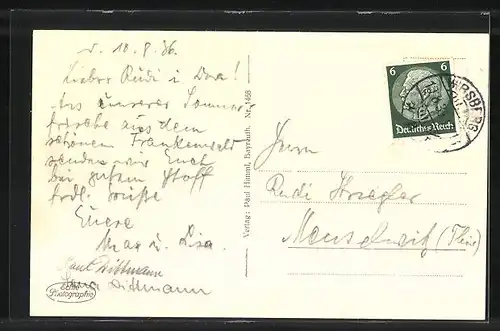 d. 10.8.36.
Lieber Rudi u. Dora!
Aus unserer Sommer-
frische aus dem
schönen Frankenwald
senden wir Euch
bei gutem Stoff
frdl. Grüße
Eure
Max u. Lisa.
Paul Dittmann
Dittmann
Echte
Photographie
Verlag: Paul Himml, Bayreuth. Nr. 1468
6 6
Deutsches Reich
Herrn
Rudi
Meuselwitz (Thür)